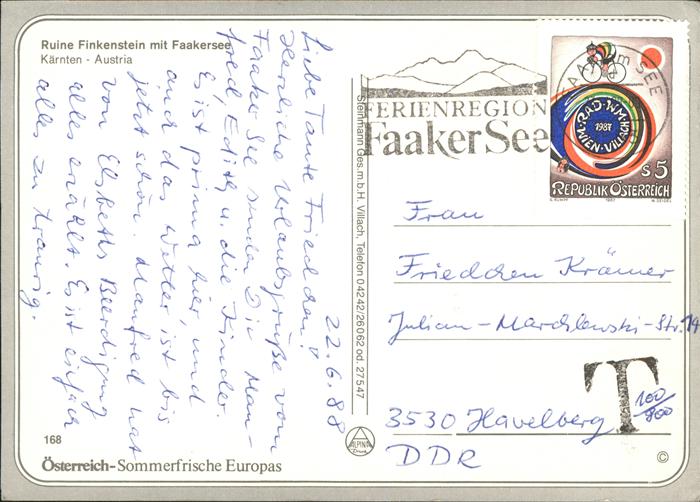 Ruine Finkenstein mit Faakersee
Kärnten - Austria
22.6.88
Liebe Tante Friedchen!
Herzliche Urlaubsgrüße vom
Faaker See senden Dir Man-
fred, Edith u. die Kinder.
Es ist prima hier, und
auch das Wetter ist bis
jetzt schön. Manfred hat
von Elsbeths Beerdigung
alles erzählt. Es ist einfach
alles zu traurig.
168
Österreich - Sommerfrische Europas
Steinmann Ges.m.b.H. Villach, Telefon 0 42 42/26062 od. 27547
ALPINA
Druck
FERIENREGION
Faaker See
FAAK am SEE
RAD-WM
WIEN-VILLACH
1987
S 5
REPUBLIK ÖSTERREICH
1987
Frau
Friedchen Krämer
Julian-Marchlewski-Str. 14
3530 Havelberg
DDR
T
100/800
©